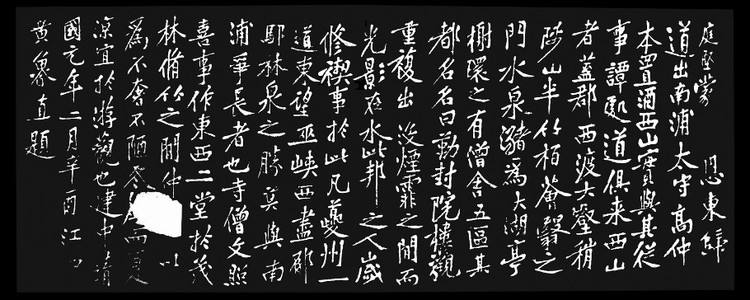 庭堅蒙 恩東歸
道出南浦太守高仲
本置酒西山實與其從
事譚處道俱來西山
者蓋郡西渡大壑稍
陟山半竹柏薈翳之
門水泉瀦為大湖亭
榭環之有僧舍五區其
都名名曰勤封院樓觀
重複出沒煙霏之間而
光影在水此邦之人歲
修禊事於此凡夔州一
道東望巫峽西盡郁
鄢林泉之勝莫與南
浦爭長者也寺僧文照
喜事作東西二堂於茂
林脩竹之間仲以
為不奢不陋冬而夏
涼宜於遊觀也建中靖
國元年二月辛酉江
黃魯直題